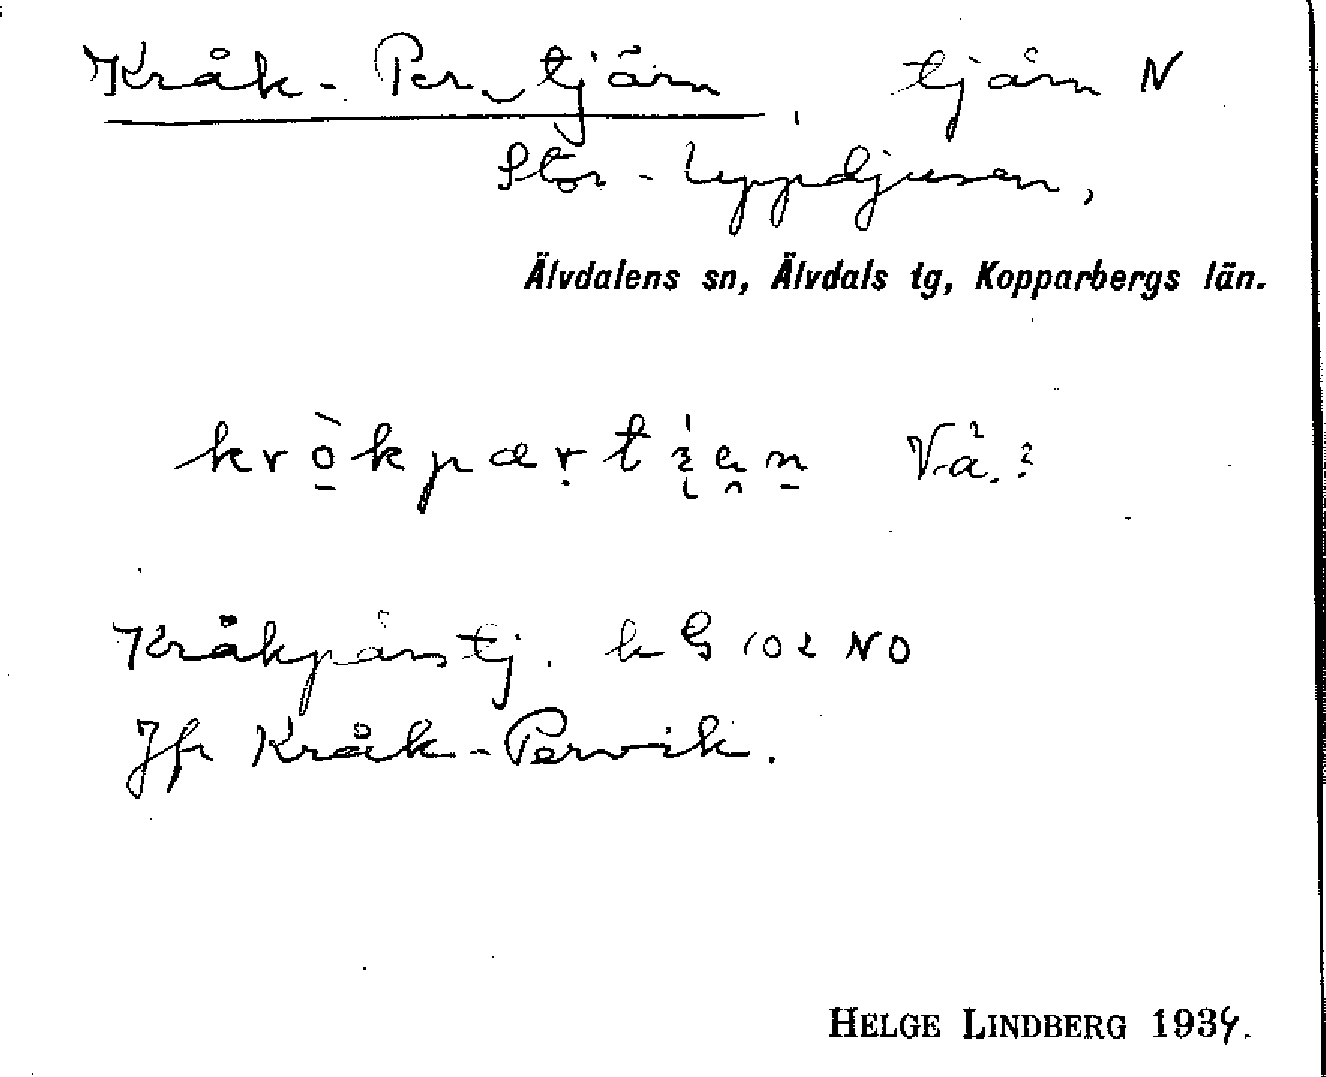 Kråk-Per-tjärn, tjärn N
Stor-Lyppdjusen,
Älvdalens sn, Älvdals tg, Kopparbergs län.
Vå.
Kråkpärstj. k G 102 NO
Jfr Kråk-Pervik.
HELGE LINDBERG 1934.